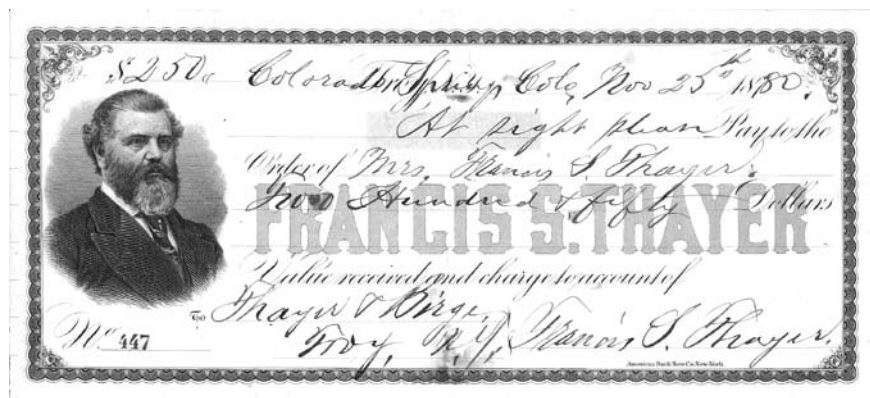 $250. Colorado Springs, Colo, Nov 25th 1880.
At sight please Pay to the
Order of Mrs. Francis S. Thayer.
Two Hundred & fifty Dollars
FRANCIS S. THAYER
Value received and charge to account of
To Thayer & Birge,
No. 447 Troy, N.Y. Francis S. Thayer.
American Bank Note Co. New York.